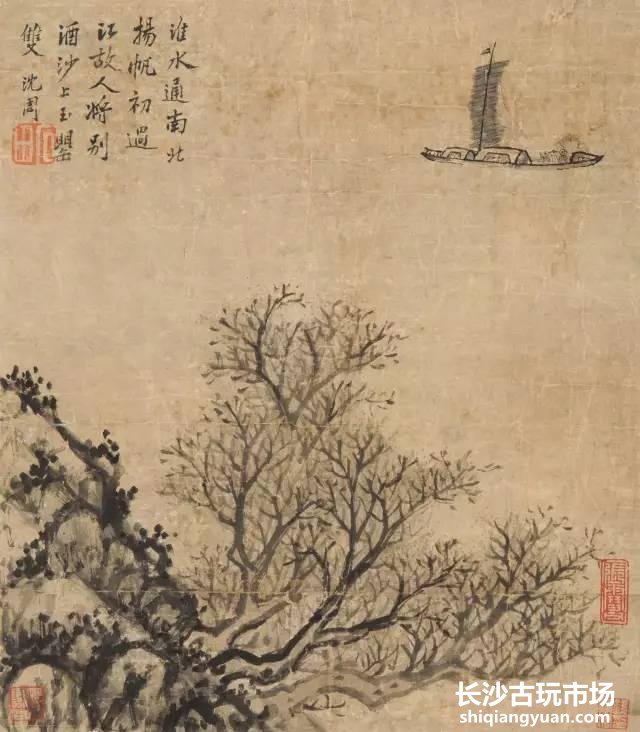 淮水通南北
揚帆初過
江故人將别
酒沙上玉罌
雙 沈周
长沙古玩市场
shiqiangyuan.com